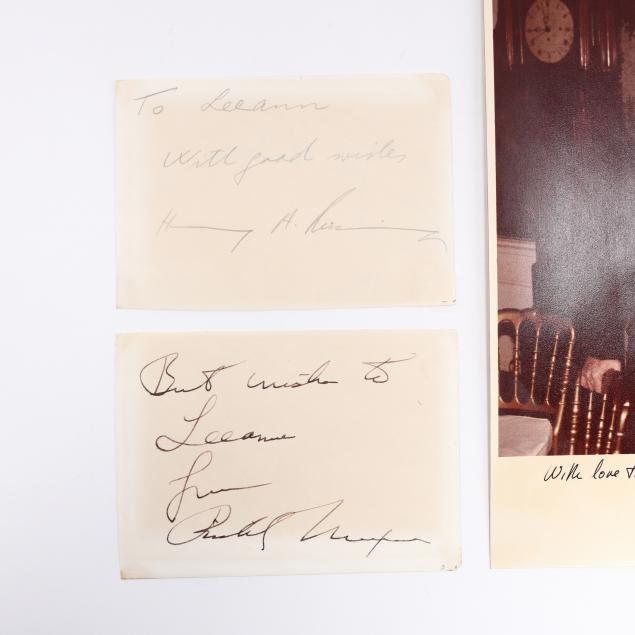 To Leeann
With good wishes
Henry A. Kissinger
Best wishes to
Leeanne
from
Richard Nixon
With love t